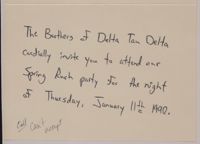 The Brothers of Delta Tau Delta
cordially invite you to attend our
Spring Rush party for the night
of Thursday, January 11th 1990.
Call Can't